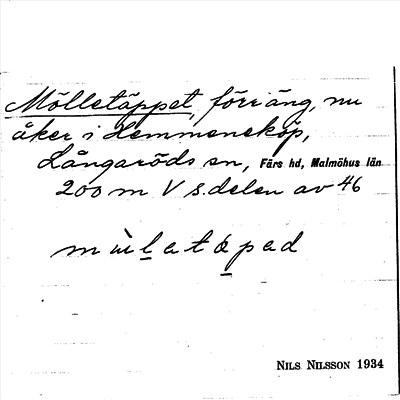 Mölletäppet, förr äng, nu
åker i Hemmeneköp,
Långaröds sn, Färs hd, Malmöhus län
200 m V s. delen av 46
NILS NILSSON 1934